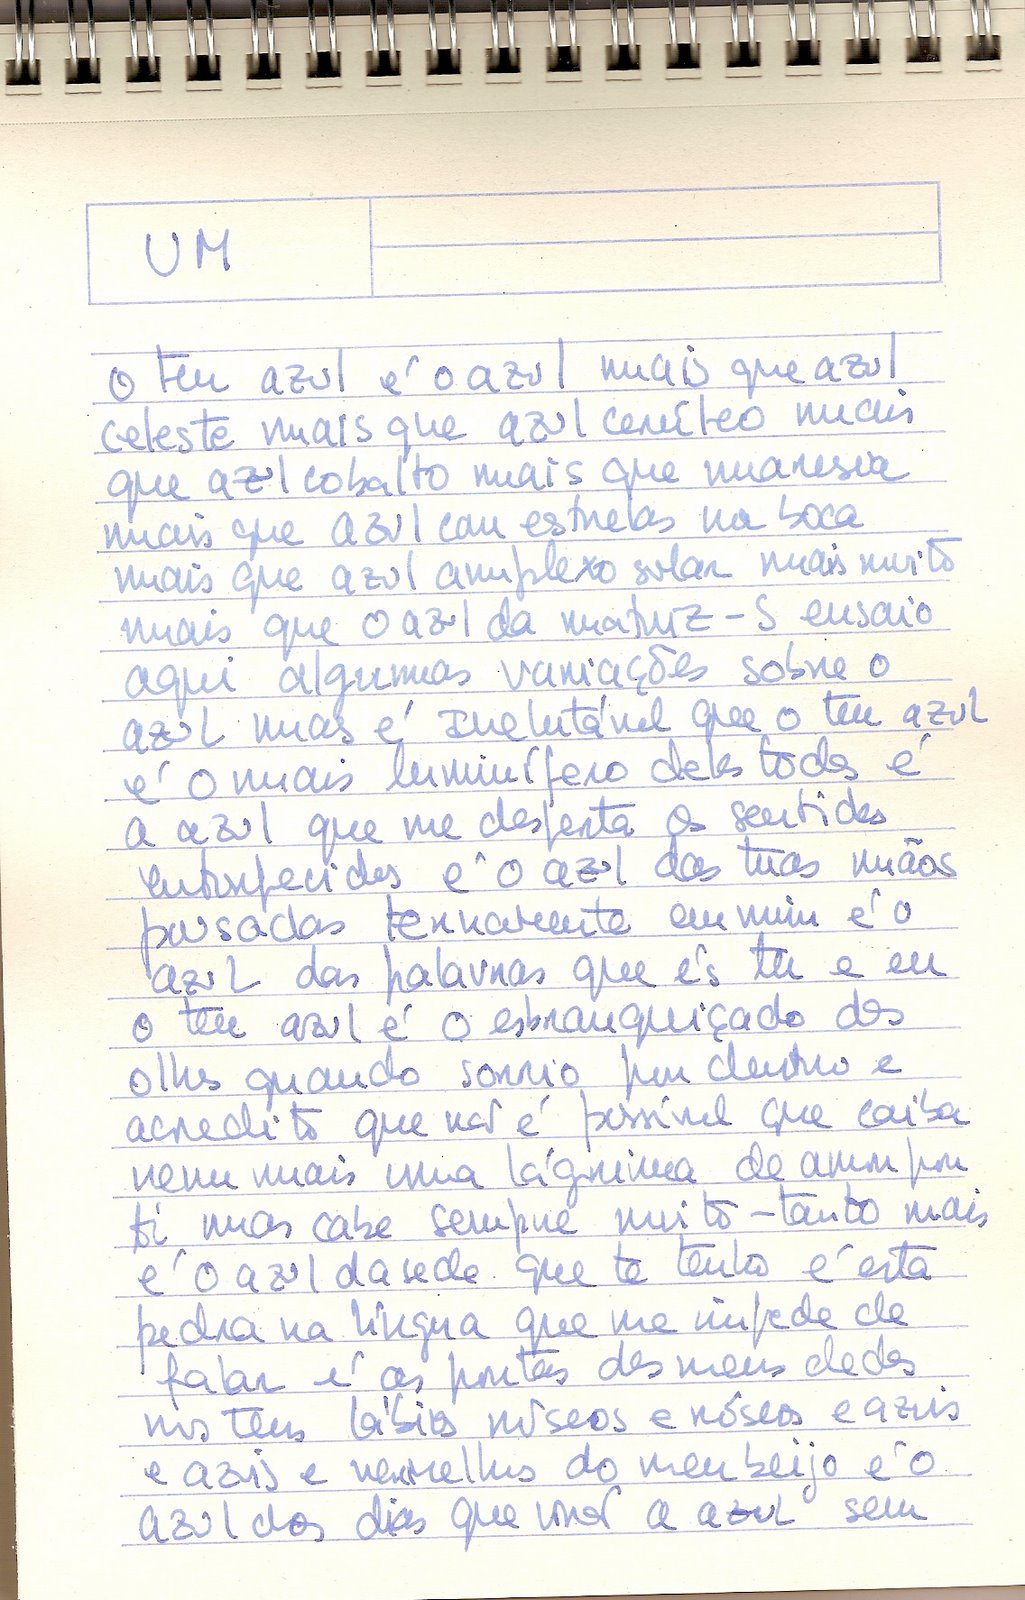 UM
o teu azul é o azul mais que azul
celeste mais que azul cerúleo mais
que azul cobalto mais que maresia
mais que azul com estrelas na boca
mais que azul amplexo solar mais muito
mais que o azul da matriz-S ensaio
aqui algumas variações sobre o
azul mas é inelutável que o teu azul
é o mais luminífero deles todos é
a azul que me desperta os sentidos
entorpecidos é o azul das tuas mãos
pousadas ternamente em mim é o
azul das palavras que és tu e eu
o teu azul é o esbranquiçado dos
olhos quando sorrio por dentro e
acredito que não é possível que caiba
nem mais uma lágrima de amor por
ti mas cabe sempre muito-tanto mais
é o azul da sede que te tenho é esta
pedra na língua que me impede de
falar é as pontas dos meus dedos
nos teus lábios róseos e róseos e azuis
e azuis e vermelhos do meu beijo é o
azul dos dias que virão a azul sem